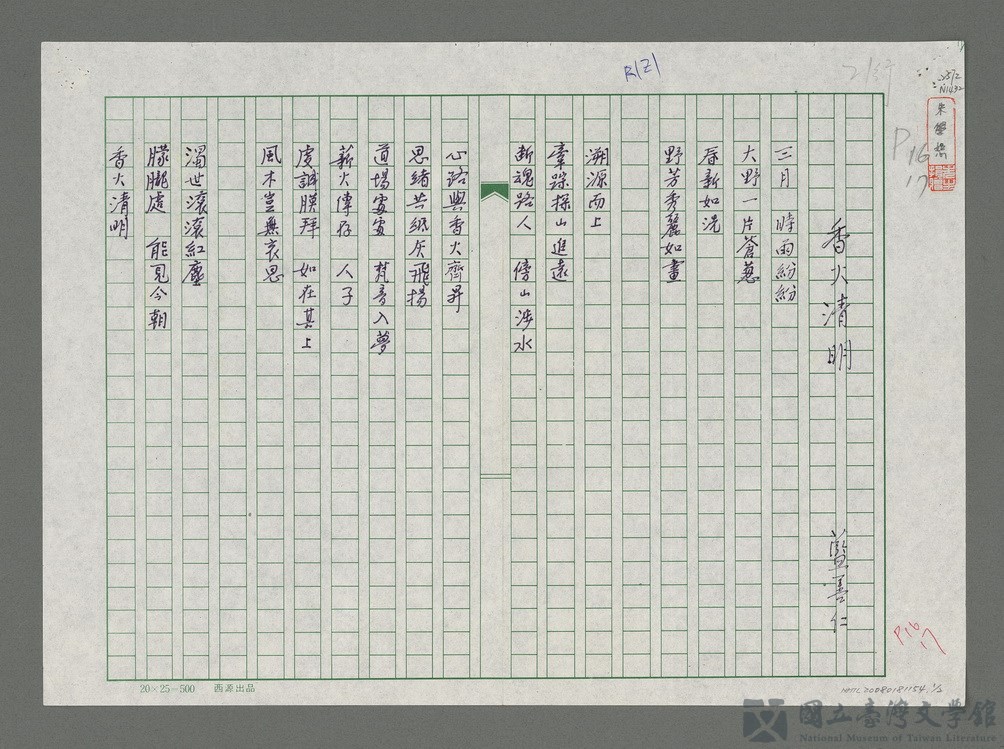 香火清明
藍善仁
三月　時雨紛紛
大野一片蒼蔥
春新如洗
野芳秀麗如畫
溯源而上
牽蹤探山進遠
斷魂路人　傍山涉水
心路與香火齊昇
思緒共紙灰飛揚
道場處處　梵音入夢
薪火傳存　人子
虔誠膜拜　如在其上
風木豈無哀思
濁世滾滾紅塵
朦朧處　能見今朝
香火清明
20×25=500　西源出品
R121
P16
17
P16
17
朱學恕
N1432
NMTL20080181154
國立臺灣文學館
National Museum of Taiwan Literature